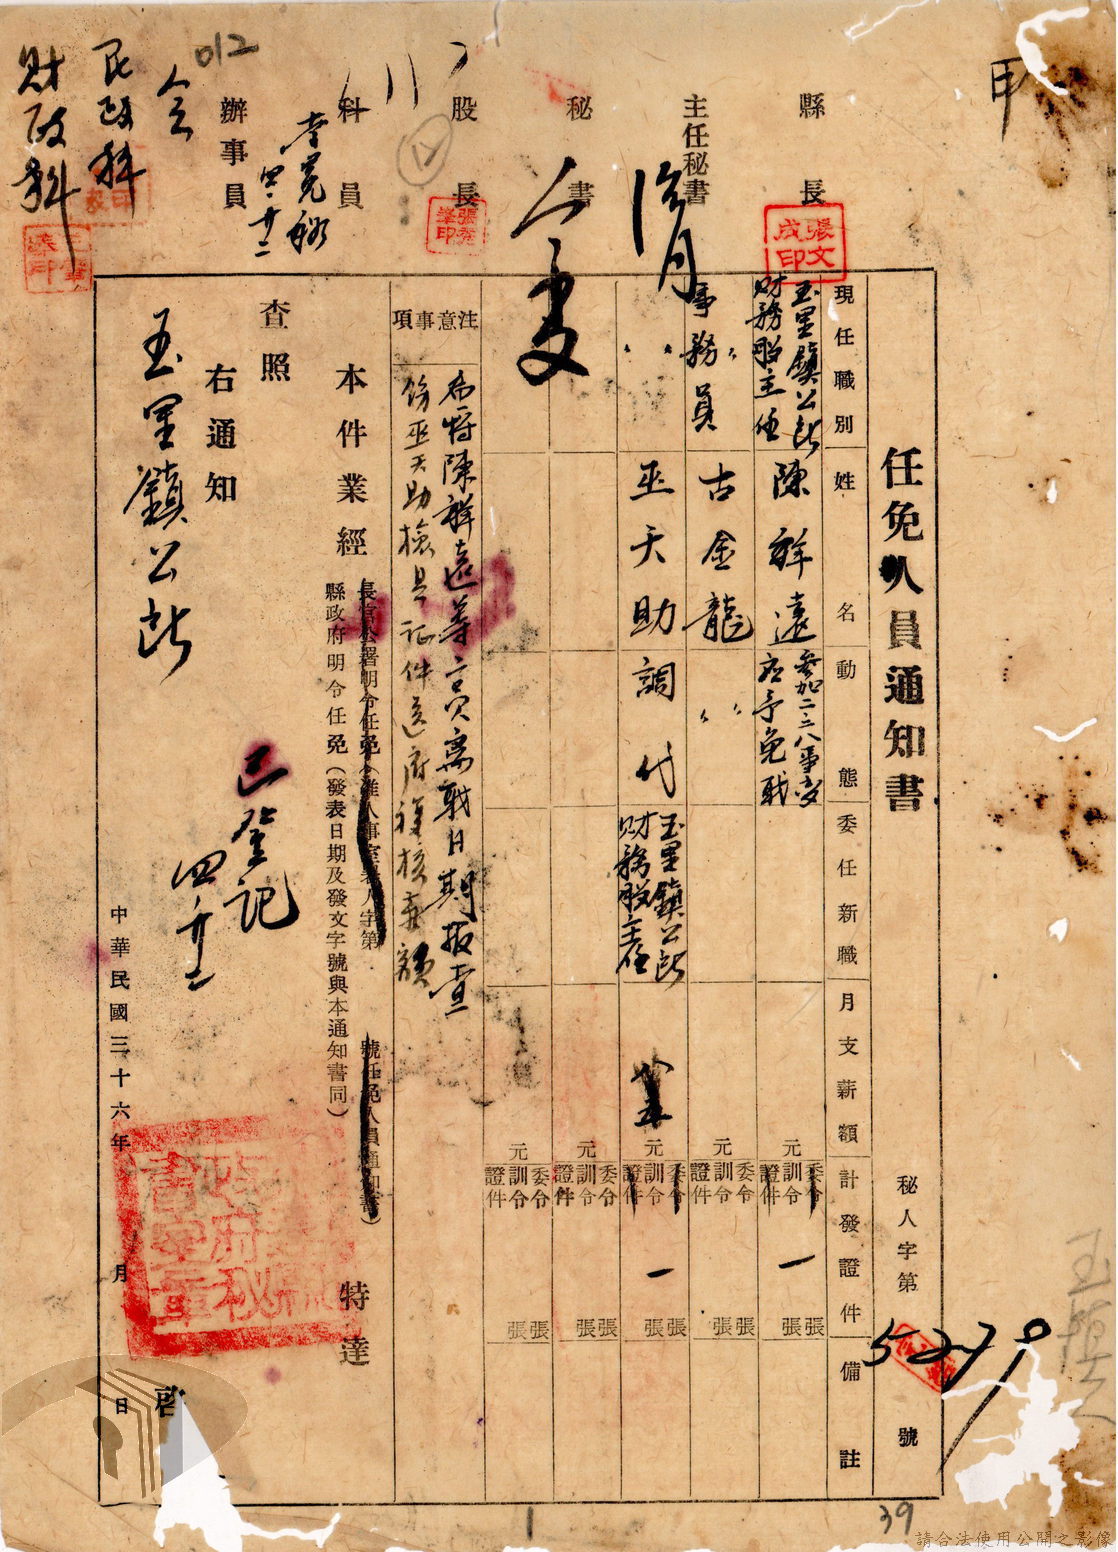 甲
任免人員通知書
秘人字第
5279
號
縣長
張文成印
主任秘書
秘書
股長
科員
辦事員
四、廿二
會
民政科
財政科
012
現任職別
姓名
動態
委任新職
月支薪額
計發證件
備註
玉里鎮公所
財務股主任
陳祥遠
參加二二八事變
应予免職
元
委令
訓令
證件
一
張
張
〃事務員
古金龍
〃〃
元
委令
訓令
證件
張
張
〃〃
巫天助
調代
玉里鎮公所
財務股主任
元
委令
訓令
證件
一
張
張
元
委令
訓令
證件
張
張
元
委令
訓令
證件
張
張
注意事項
希將陳祥遠等二員离職日期报查
飭巫天助檢具証件送府
本件業經
縣政府明令任免（發表日期及發文字號與本通知書同）
特達
查照
右通知
玉里鎮公所
已登記
四、廿二
中華民國三十六年 月 日
啓
39
請合法使用公開之影像